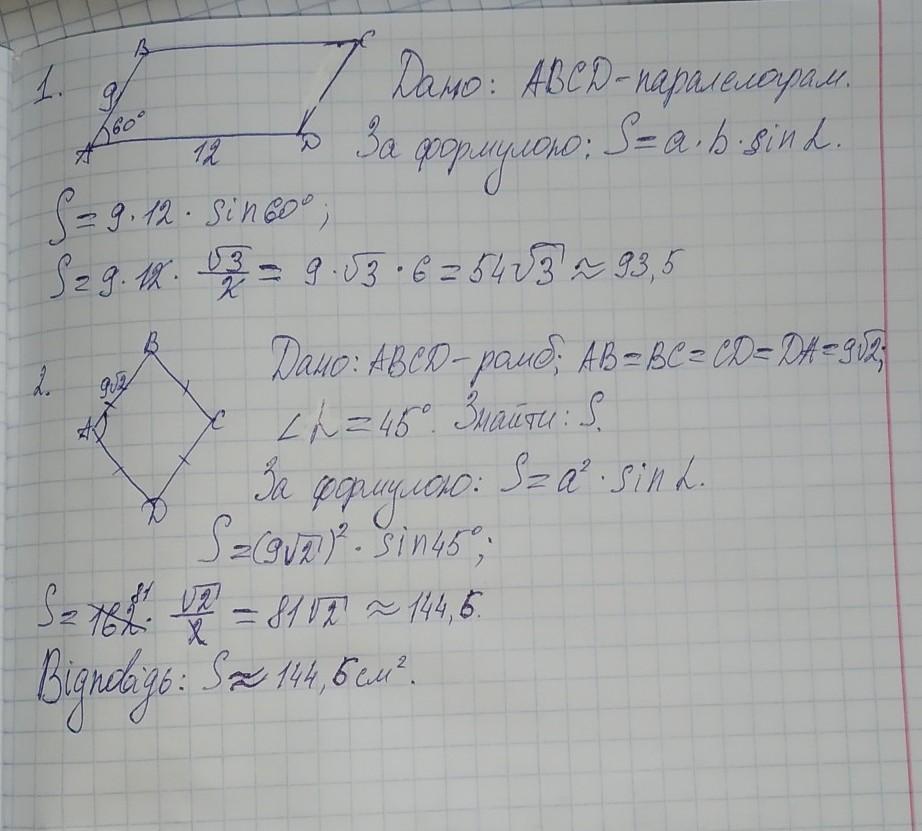 1.
B C
9
60°
A 12 D
Дано: ABCD - паралелограм.
За формулою: S = a · b · sin α.
S = 9 · 12 · sin 60°;
S = 9 · 12 · √3/2 = 9 · √3 · 6 = 54√3 ≈ 93,5
2.
B
9√2
A C
D
Дано: ABCD - ромб; AB = BC = CD = DA = 9√2;
∠α = 45°. Знайти: S.
За формулою: S = a² · sin α.
S = (9√2)² · sin 45°;
S = 162 81 · √2/2 = 81√2 ≈ 144,5.
Відповідь: S ≈ 144,5 см².